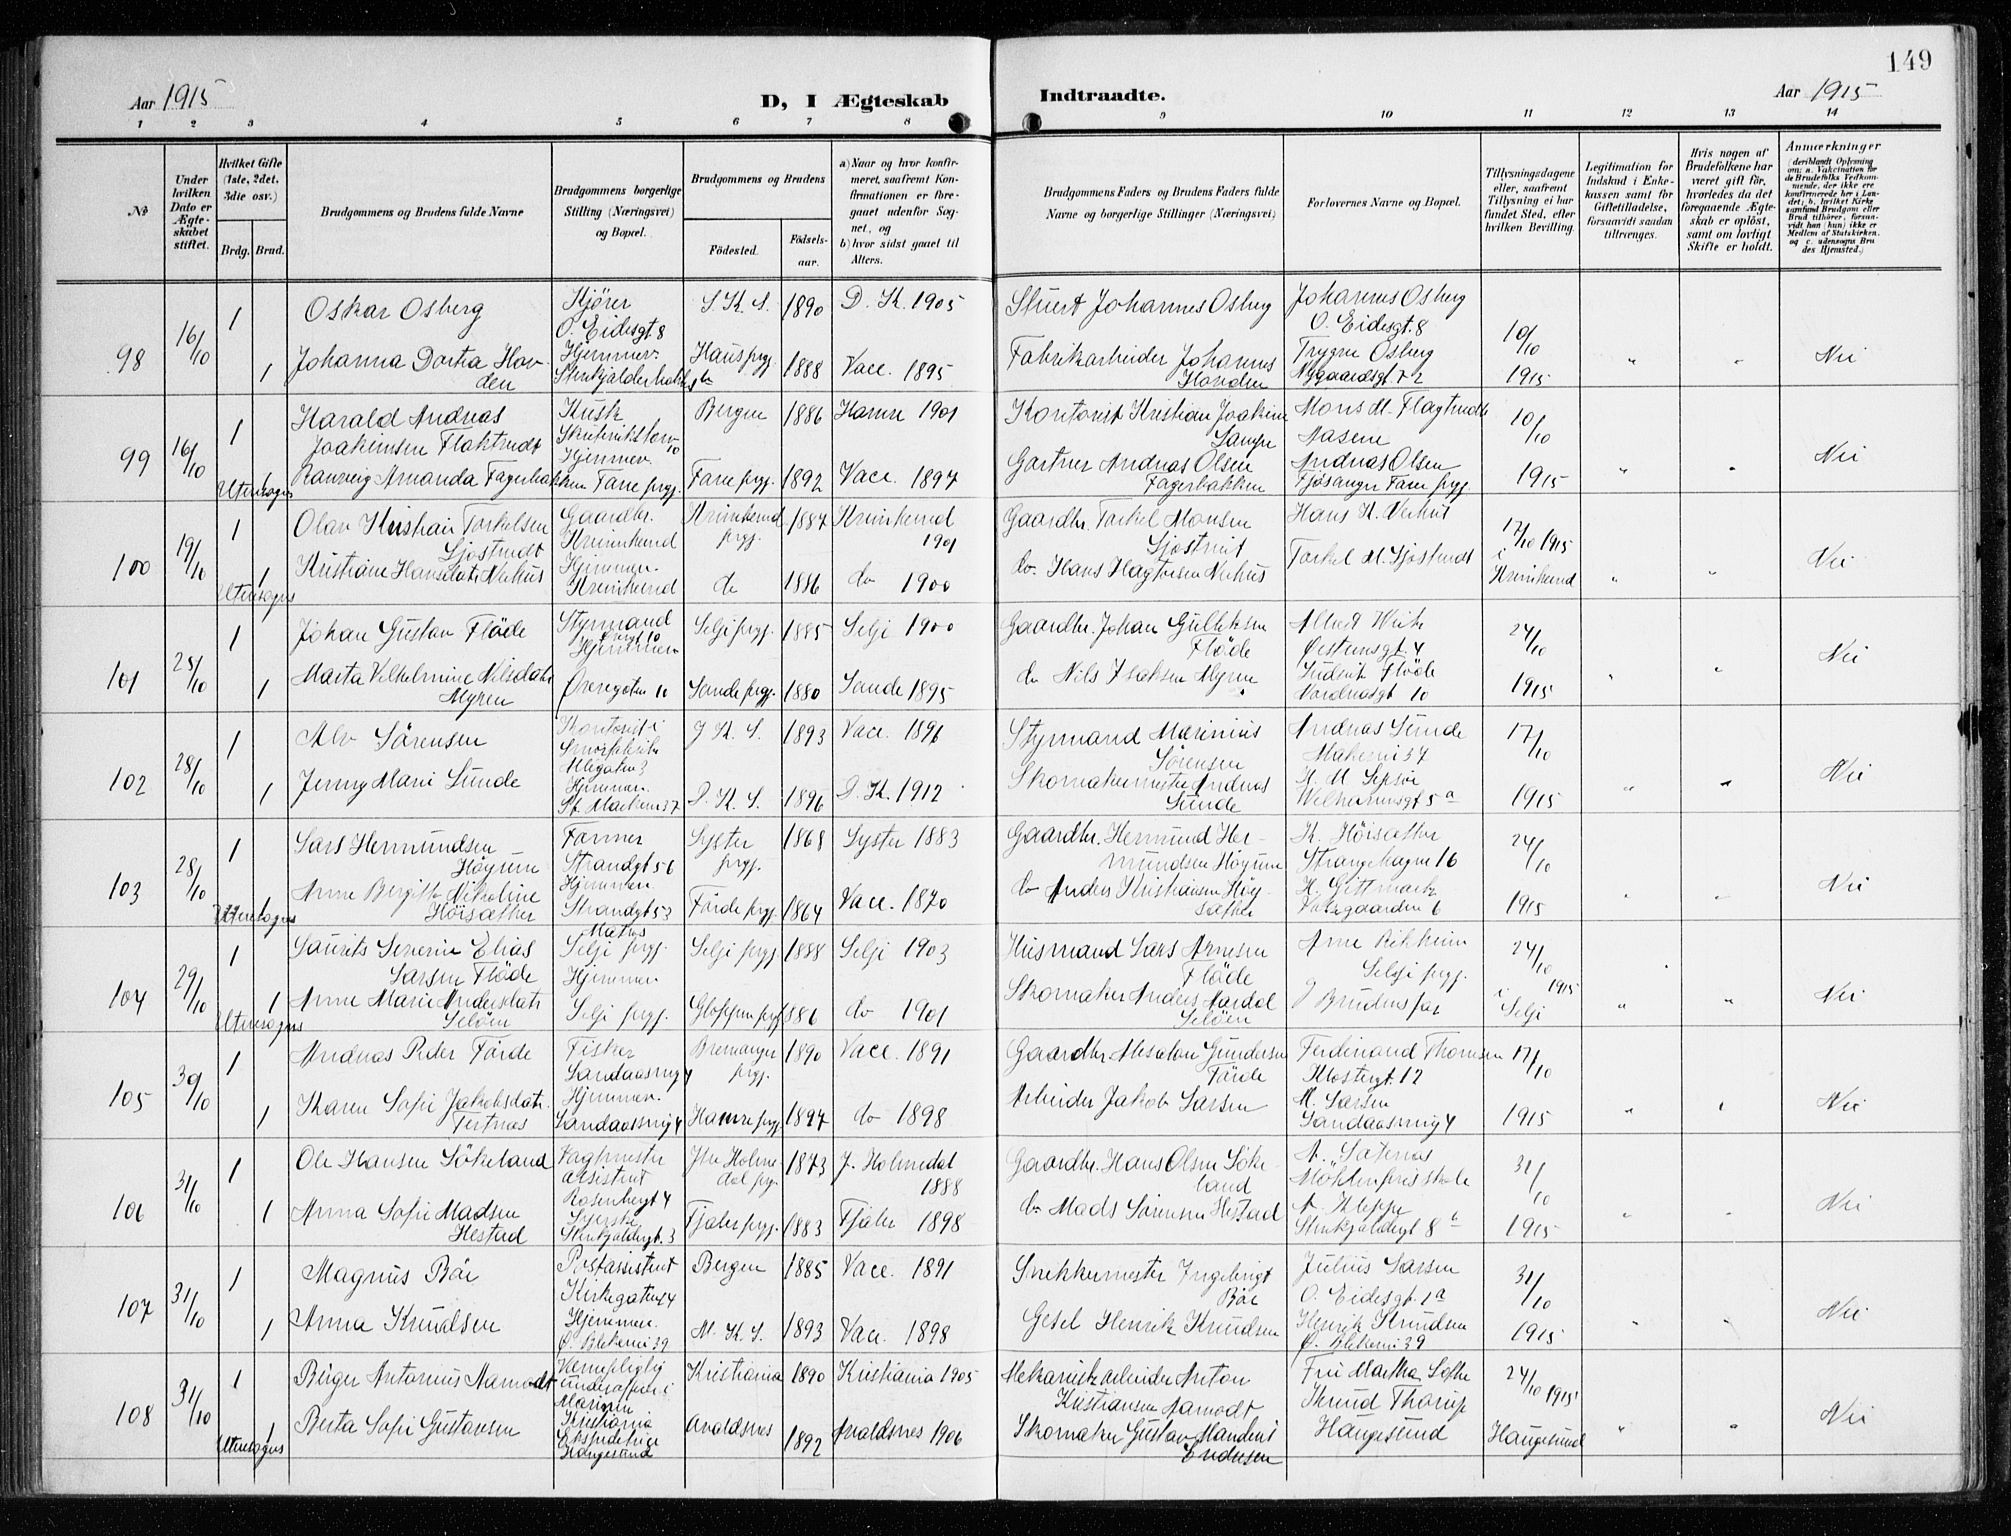 149
Aar 1915
D, I Ægteskab
Indtraadte.
Aar 1915
1 2 3 4 5 6 7 8 9 10 11 12 13 14
№
Under hvilken Dato er Ægteskabet stiftet.
Hvilket Gifte (1ste, 2det, 3die osv.)
Brdg. Brud.
Brudgommens og Brudens fulde Navne
Brudgommens borgerlige Stilling (Næringsvei) og Bopæl.
Brudgommens og Brudens
Fødested.
Fødselsaar.
a) Naar og hvor konfirmeret, saafremt Konfirmationen er foregaaet udenfor Sognet, og
b) hvor sidst gaaet til Alters.
Brudgommens Faders og Brudens Faders fulde Navne og borgerlige Stillinger (Næringsvei)
Forlovernes Navne og Bopæl.
Tillysningsdagene eller, saafremt Tillysning ei har fundet Sted, efter hvilken Bevilling.
Legitimation for Indskud i Enkekassen samt for Giftetilladelse, forsaavidt saadan tiltrænges.
Hvis nogen af Brudefolkene har været gift før, hvorledes da det foregaaende Ægteskab er opløst, samt om lovligt Skifte er holdt.
Anmærkninger
98 16/10 1 Oskar Osberg
Kjører O. Eidesgt. 8
S. K. S. 1890 D. K. 1905
Stuert Johannes Osberg
Johannes Osberg O. Eidesgt. 8
10/10 1915
1 Johanna Dortea Hovden
Hjemmev.
Haus prgj. 1888 Vacc. 1895
Fabrikarbeider Johannes Hovden
Trygve Osberg Nygaardsgt 72
" " Nei
99 16/10 1 Harald Andreas Joakimsen Flaktvedt
Kusk
Bergen 1886 Hamre 1901
Kontorist Kristian Joakim
Mons M. Flagtvedt Aasene
10/10 1915
Utensogns 1 Ranveig Amanda Fagerbakken
Hjemmev. Fane prgj.
Fane prgj. 1892 Vacc. 1897
Gartner Andreas Olsen Fagerbakken
Andreas Olsen Fjøsanger Fane prgj.
" " Nei
100 19/10 1 Olav Kristian Torkelsen
Gaardbr. Kvinnherred
Kvinnherred prgj. 1887 Kvinnherred 1901
Gaardbr. Torkel Monsen
Hans H. Nerhus
17/10 1915 i Kvinnherred
Utensogns 1 Kristiane Hansdatr Nerhus
Hjemmev. Kvinnherred
do 1886 do 1900
do. Hans Hagtorsen Nerhus
" " Nei
101 25/10 1 Johan Gustav Fløde
Styrmand
Selje prgj. 1885 Selje 1900
Gaardbr. Johan Gulleksen Fløde
24/10 1915
1 Marta Vilhelmine Nilsdatr Myren
Hjemmev. Øvregaten 10
Sande prgj. 1880 Sande 1895
do Nils Isaksen Myren
Fløde Nordnesgt 10
" " Nei
102 28/10 1 Alv Sørensen
Kontorist i Smørfabrik
J. K. S. 1893 Vacc. 1896
Styrmand Marinius Sørensen
Andreas Sunde Markevei 37
17/10 1915
1 Jenny Marie Sunde
Hjemmev. St. Markevei 37
D. K. S. 1896 D. K. 1912
Skomakermester Andreas Sunde
" " Nei
103 28/10 1 Lars Hermundsen Høyum
Farmer Strandgt 56
Lyster prgj. 1868 Lyster 1883
Gaardbr. Hermund Hermundsen Høyum
K. Høisæther Strangehagen 16
24/10 1915
Utensogns 1 Anne Birgitte Nikoline Høisæther
Hjemmev. Strandgt 53
Førde prgj. 1864 Vacc. 1870
do Anders Kristiansen Høysæther
" " Nei
104 29/10 1 Laurits Severin Elias Larsen Fløde
Selje prgj.
Selje prgj. 1888 Selje 1903
Husmand Lars Arnesen Fløde
Selje prgj.
24/10 1915 i Selje
Utensogns 1 Anne Marie Andersdatr Seløen
Hjemmev. Selje prgj.
Gloppen prgj. 1886 do 1901
Skomaker Anders Aardal Seløen
" " Nei
105 30/10 1 Andreas Peder Førde
Fisker Sandaasvei 4
Bremanger prgj. 1890 Vacc. 1891
Gaardbr. Absalon Gundersen Førde
Ferdinand Thomsen Klostergt. 12
17/10 1915
1 Karen Sofie Jakobsdatr. Tertnæs
Hjemmev. Sandaasvei 4
Hamre prgj. 1897 do 1898
Arbeider Jakob Larsen
M. Larsen Sandaasvei 4
" " Nei
106 31/10 1 Ole Hansen Søkeland
Vagtmester assistent Rosenbergt 4
Ytre Holmedal prgj. 1873 Y. Holmedal 1888
Gaardbr. Hans Olsen Søkeland
Møhlenpris skole
31/10 1915
1 Anna Sofie Madsen Hestad
Syerske Steinkjeldergt. 3
Fjaler prgj. 1883 Fjaler 1898
do Mads Sørensen Hestad
A. Kleppe Steinkjeldergt 8 b
" " Nei
107 31/10 1 Magnus Bøe
Postassistent Kirkegaten 4
Bergen 1885 Vacc. 1891
Snekkermester Ingebrigt Bøe
Julius Larsen O. Eidesgt. 1 a
31/10 1915
1 Anna Knudsen
Hjemmev. Ø. Blekevei 39
M. K. S. 1893 Vacc. 1898
Gesel Henrik Knudsen
Henrik Knudsen Ø. Blekevei 39
" " Nei
108 31/10 1 Birger Antonius Aamodt
Vernepligtig underofficer i Marinen Kristiania
Kristiania 1890 Kristiania 1905
Mekanisk arbeider Anton Kristiansen Aamodt
Fru Martha Lothe
24/10 1915 Haugesund
Utensogns 1 Berta Sofie Gustavsen
Ekspeditrice Haugesund
Avaldsnes 1892 Avaldsnes 1906
Skomaker Gustav Mandius Endresen
Knud Thorup Haugesund
" " Nei